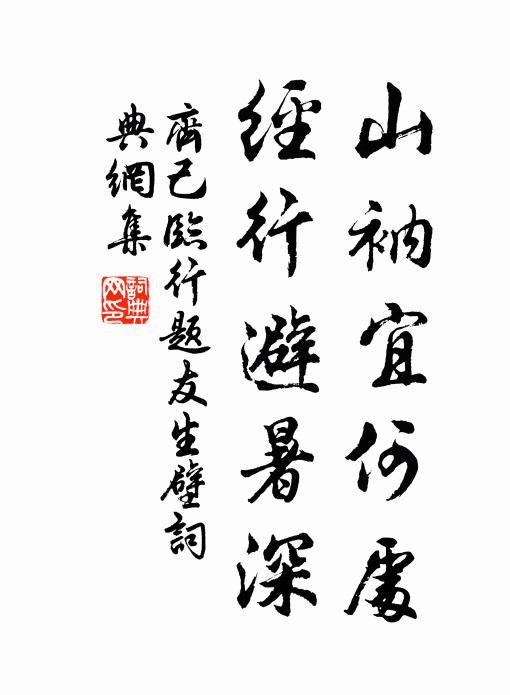 山衲宜何處
經行避暑深
齊己臨行題友生壁詞
典網集
詞典網印